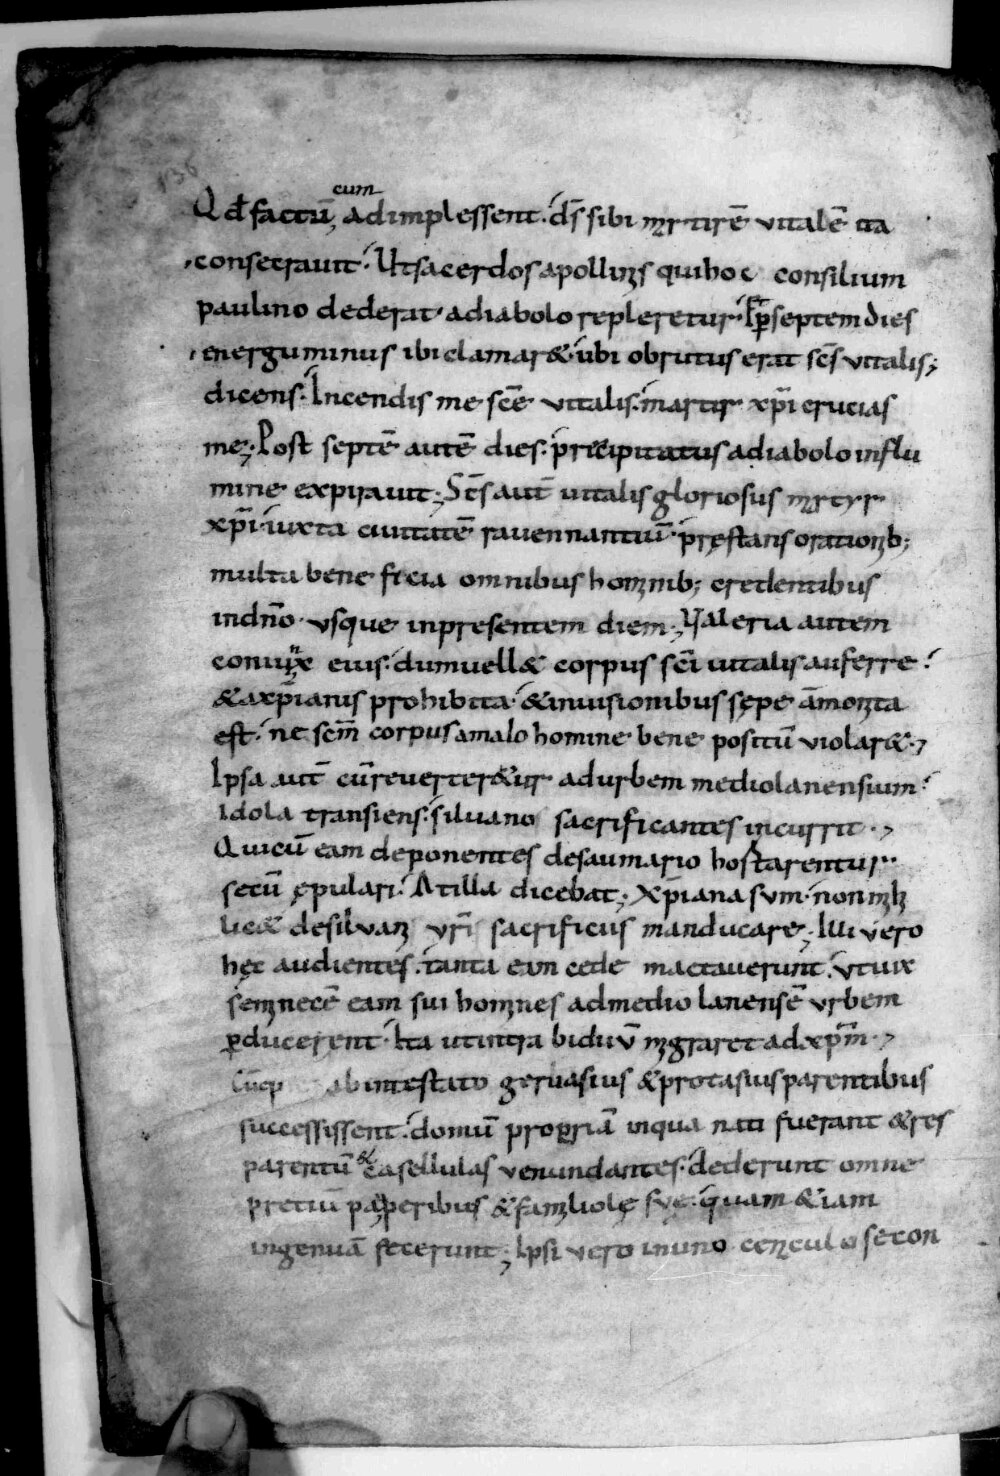 cum
Qđ factū; adimplessent. d̄s sibi martirē vitalē ita
consecrauit. Ut sacerdos apollinis qui hoc consilium
paulino dederat adiabolo repleretur. & per septem dies
energuminus ibi clamar& ubi obrutus erat sc̄s vitalis;
dicens. Incendis me sc̄e vitalis. martir xp̄i crucias
me; Post septē autē dies. precipitatus adiabolo influ
mine expirauit; Sc̄s aut̄ uitalis gloriosus martyr
xp̄i iuxta ciuitatē rauennantiū. pręstans orationib;
multa bene ficia omnibus hominib; credentibus
indn̄o usque inpresentem diem; Valeria autem
coniunx eius. dum uell& corpus sc̄i uitalis auferre.
& axp̄ianis prohibita. & inuisionibus sępe āmonita
est. ne sc̄m corpus amalo homine bene positū violar&;
Ipsa aut̄ cū reuerter&ur adurbem mediolanensium.
Idola transiens. siluano sacrificantes incurrit;
Qui cū eam deponentes desaumario hortarentur
secū ępulari. At illa dicebat; Xp̄iana sum. non mihi
lic& desiluani vr̄i sacrificiis manducare; Illi vero
hęc audientes. tanta eam cede mactauerunt. ut uix
seminecē eam sui homines admediolanensē vrbem
ꝑducerent. Ita utintra biduū migraret adxp̄m;
abintestato geruasius & protasius parentibus
successissent. domū propriā inqua nati fuerant & res
parentū & casellulas venundantes. dederunt omne
pretiū pauperibus & familiolę suę. quam & iam
ingenuā fecerunt; Ipsi vero inuno cenculo se con